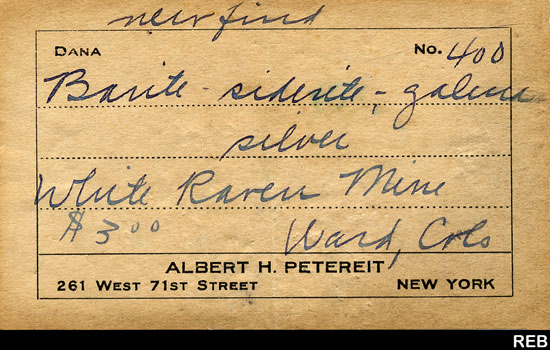 new find
DANA No. 400
Barite - siderite -, galena
silver
White Raven Mine
$3.00 Ward, Colo
ALBERT H. PETEREIT
261 WEST 71ST STREET NEW YORK
REB